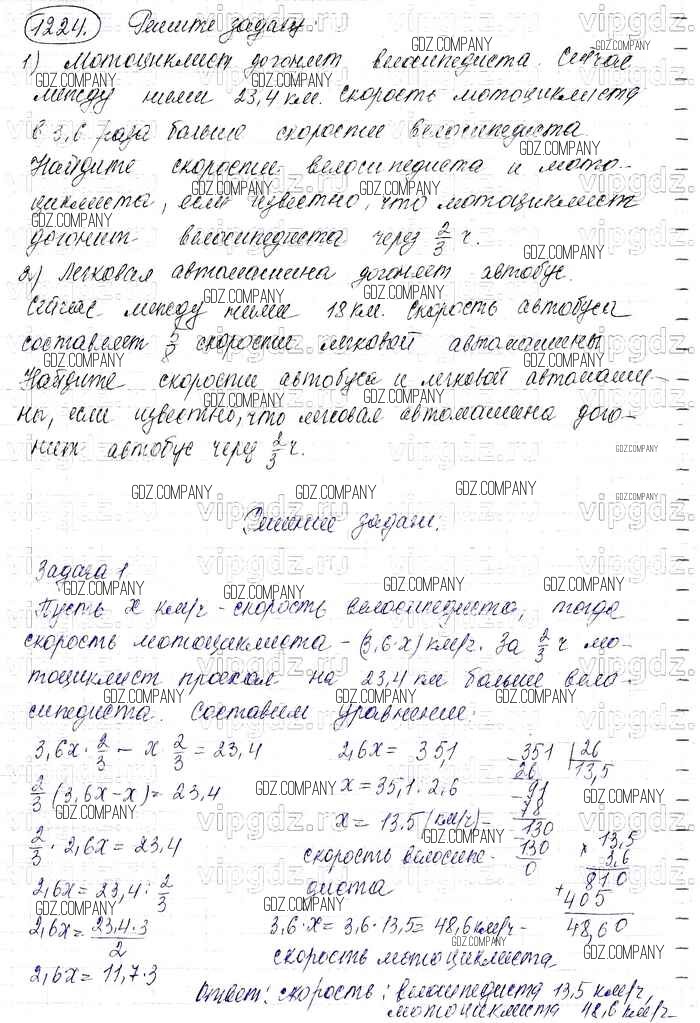 1224. Решите задачу:
1) Мотоциклист догоняет велосипедиста. Сейчас
между ними 23,4 км. Скорость мотоциклиста
в 3,6 раза больше скорости велосипедиста.
Найдите скорости велосипедиста и мото-
циклиста, если известно, что мотоциклист
догонит велосипедиста через 2/3 ч.
2) Легковая автомашина догоняет автобус.
Сейчас между ними 18 км. Скорость автобуса
составляет скорости легковой автомашины
Найдите скорости автобуса и легковой автомаши-
ны, если известно, что легковая автомашина дого-
нит автобус через 2/3 ч.
Решение задач:
Задача 1
Пусть x км/ч - скорость велосипедиста, тогда
скорость мотоциклиста - (3,6·x) км/ч. За 2/3 ч мо-
тоциклист проехал на 23,4 км больше вело-
сипедиста. Составим уравнение:
3,6x · 2/3 - x · 2/3 = 23,4
2/3 (3,6x - x) = 23,4
2/3 · 2,6x = 23,4
2,6x = 23,4 : 2/3
2,6x = 23,4·3/2
2,6x = 11,7·3
2,6x = 35,1
x = 35,1 : 2,6
x = 13,5 (км/ч) -
скорость велосипе-
диста
3,6·x = 3,6·13,5 = 48,6 км/ч -
скорость мотоциклиста
351 | 26
26 13,5
91
78
130
130
0
× 13,5
3,6
810
+ 405
48,60
Ответ: скорость: велосипедиста 13,5 км/ч,
мотоциклиста 48,6 км/ч
GDZ.COMPANY
vipgdz.ru